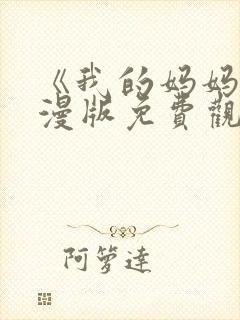 《我的妈妈
漫版免費觀
阿箩達